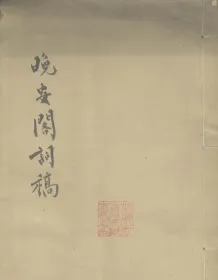 晚安閣詞稿